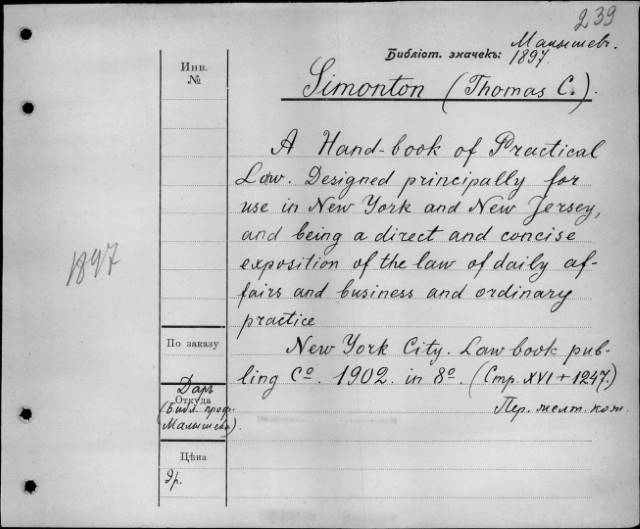 239
Малышев.
Библіот. значекъ: 1897.
Инв.
№
Simonton (Thomas C.).
A Hand-book of Practical
Law. Designed principally for
use in New York and New Jersey,
and being a direct and concise
exposition of the law of daily af-
fairs and business and ordinary
practice
1897
По заказу
New York City. Law book pub-
ling Cº. 1902. in 8º. (Стр. XVI + 1247.)
Даръ
Откуда
(Библ. проф.
Малышева).
Пер. желт. кож.
Цѣна
Эр.